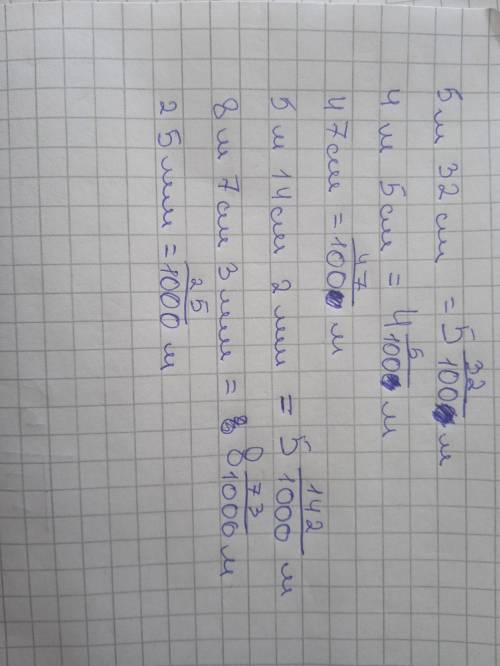 5 м 32 см = 5 32/100 м
4 м 5 см = 4 5/100 м
47 см = 47/100 м
5 м 14 см 2 мм = 5 142/1000 м
8 м 7 см 3 мм = 8 73/1000 м
25 мм = 25/1000 м